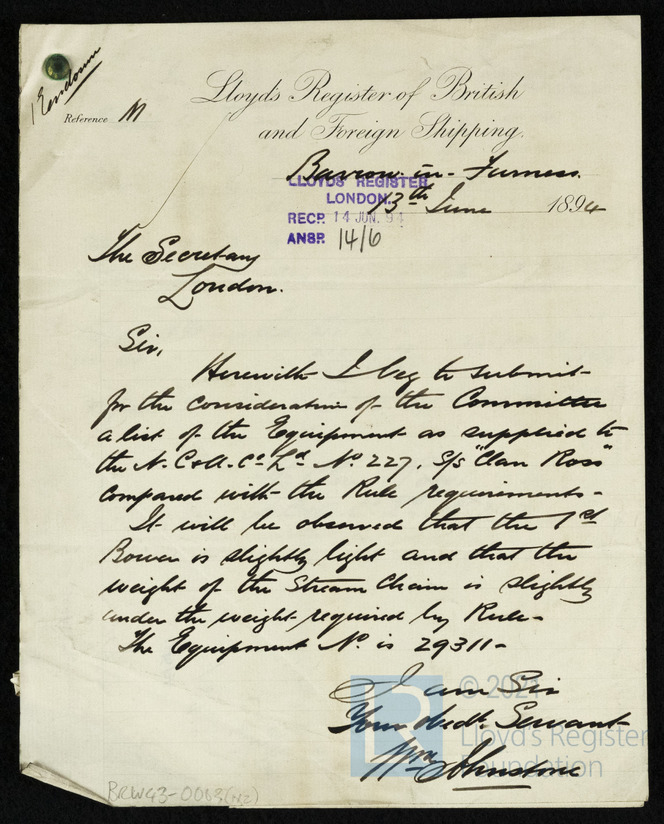 1 Enclosure
Reference M
Lloyds Register of British
and Foreign Shipping.
Barrow-in-Furness.
LLOYDS REGISTER
LONDON.
13th June 1894
RECD. 14 JUN. 94
ANSD. 14/6
The Secretary
London.
Sir,
Herewith I beg to submit
for the consideration of the Committee
a list of the Equipment as supplied to
the N.C&A.Co Ld No 227, S/s "Clan Ross"
compared with the Rule requirements-
It will be observed that the 1st
Bower is slightly light and that the
weight of the Stream Chain is slightly
under the weight required by Rule-
The Equipment No. is 29311-
I am Sir
Your obedt. Servant
Wm Johnstone
© 2021
Lloyd's Register
Foundation
BRW43-0063(N2)